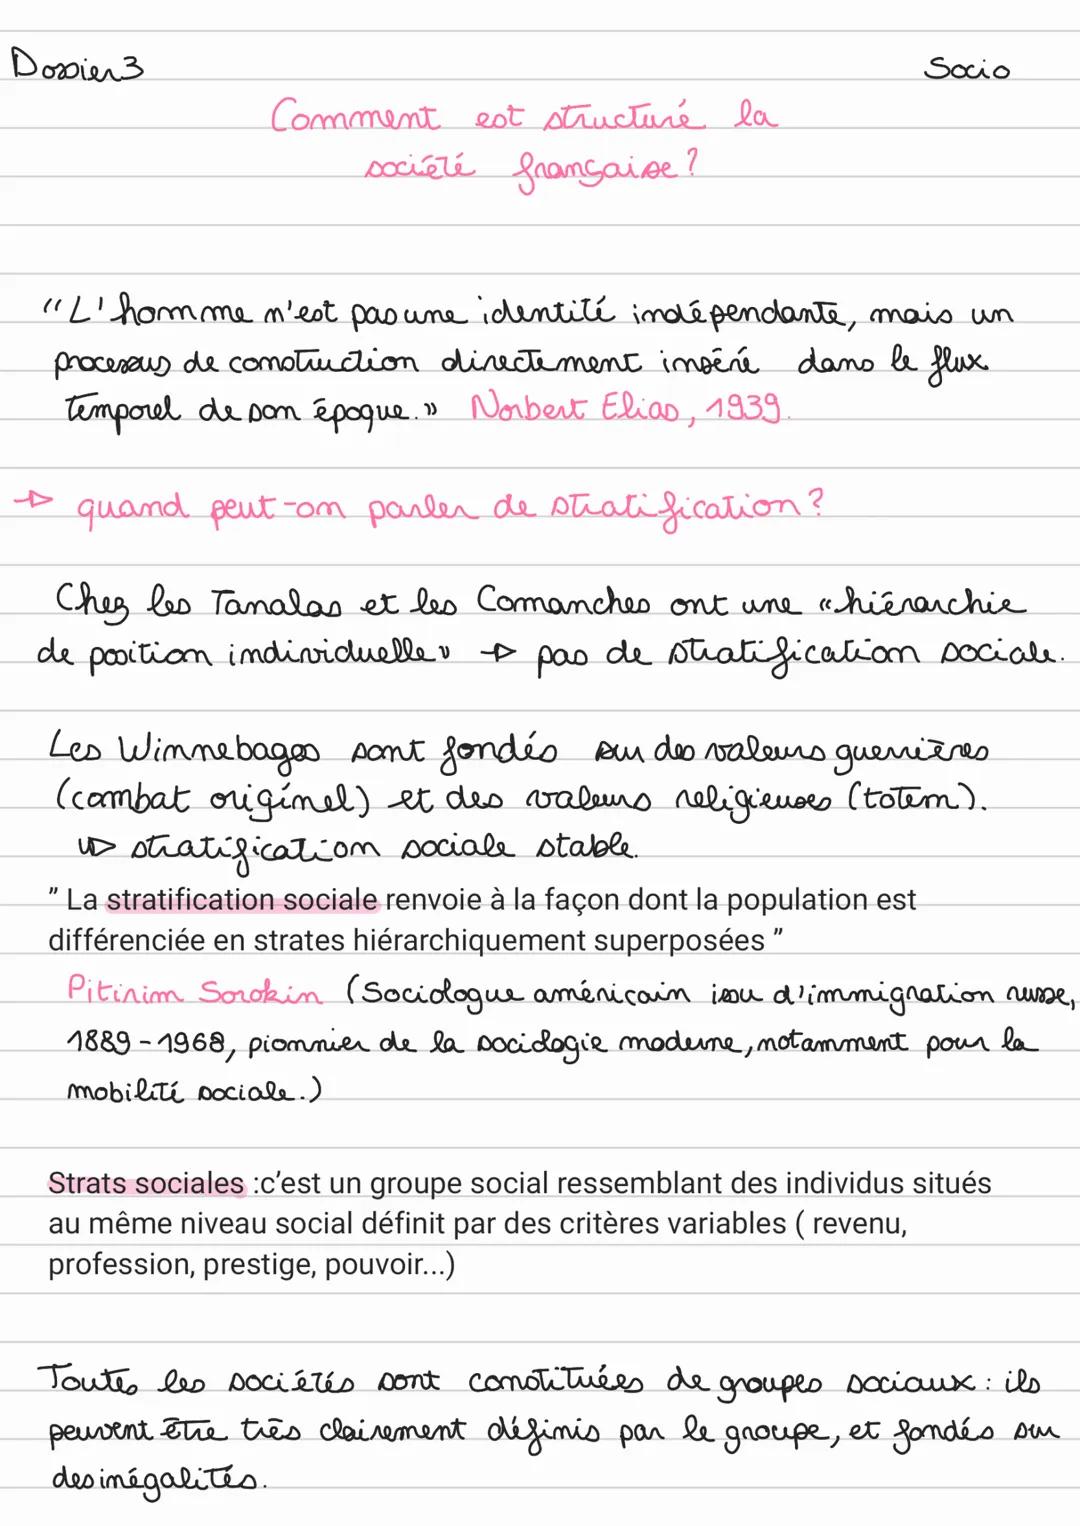 Dossier 3
Socio
Comment est structuré la
société française ?
"L'homme n'est pas une identité indépendante, mais un
processus de construction directement inséré dans le flux
temporel de son époque.» Norbert Elias, 1939.
→ quand peut-on parler de stratification ?
Chez les Tanalas et les Comanches ont une «hiérarchie
de position individuelle» → pas de stratification sociale.
Les Winnebagos sont fondés sur des valeurs guerrières
(combat originel) et des valeurs religieuses (totem).
↳ stratification sociale stable.
" La stratification sociale renvoie à la façon dont la population est
différenciée en strates hiérarchiquement superposées "
Pitirim Sorokin (Sociologue américain issu d'immigration russe,
1889-1968, pionnier de la sociologie moderne, notamment pour la
mobilité sociale.)
Strats sociales :c'est un groupe social ressemblant des individus situés
au même niveau social définit par des critères variables ( revenu,
profession, prestige, pouvoir...)
Toutes les sociétés sont constituées de groupes sociaux : ils
peuvent être très clairement définis par le groupe, et fondés sur
des inégalités.